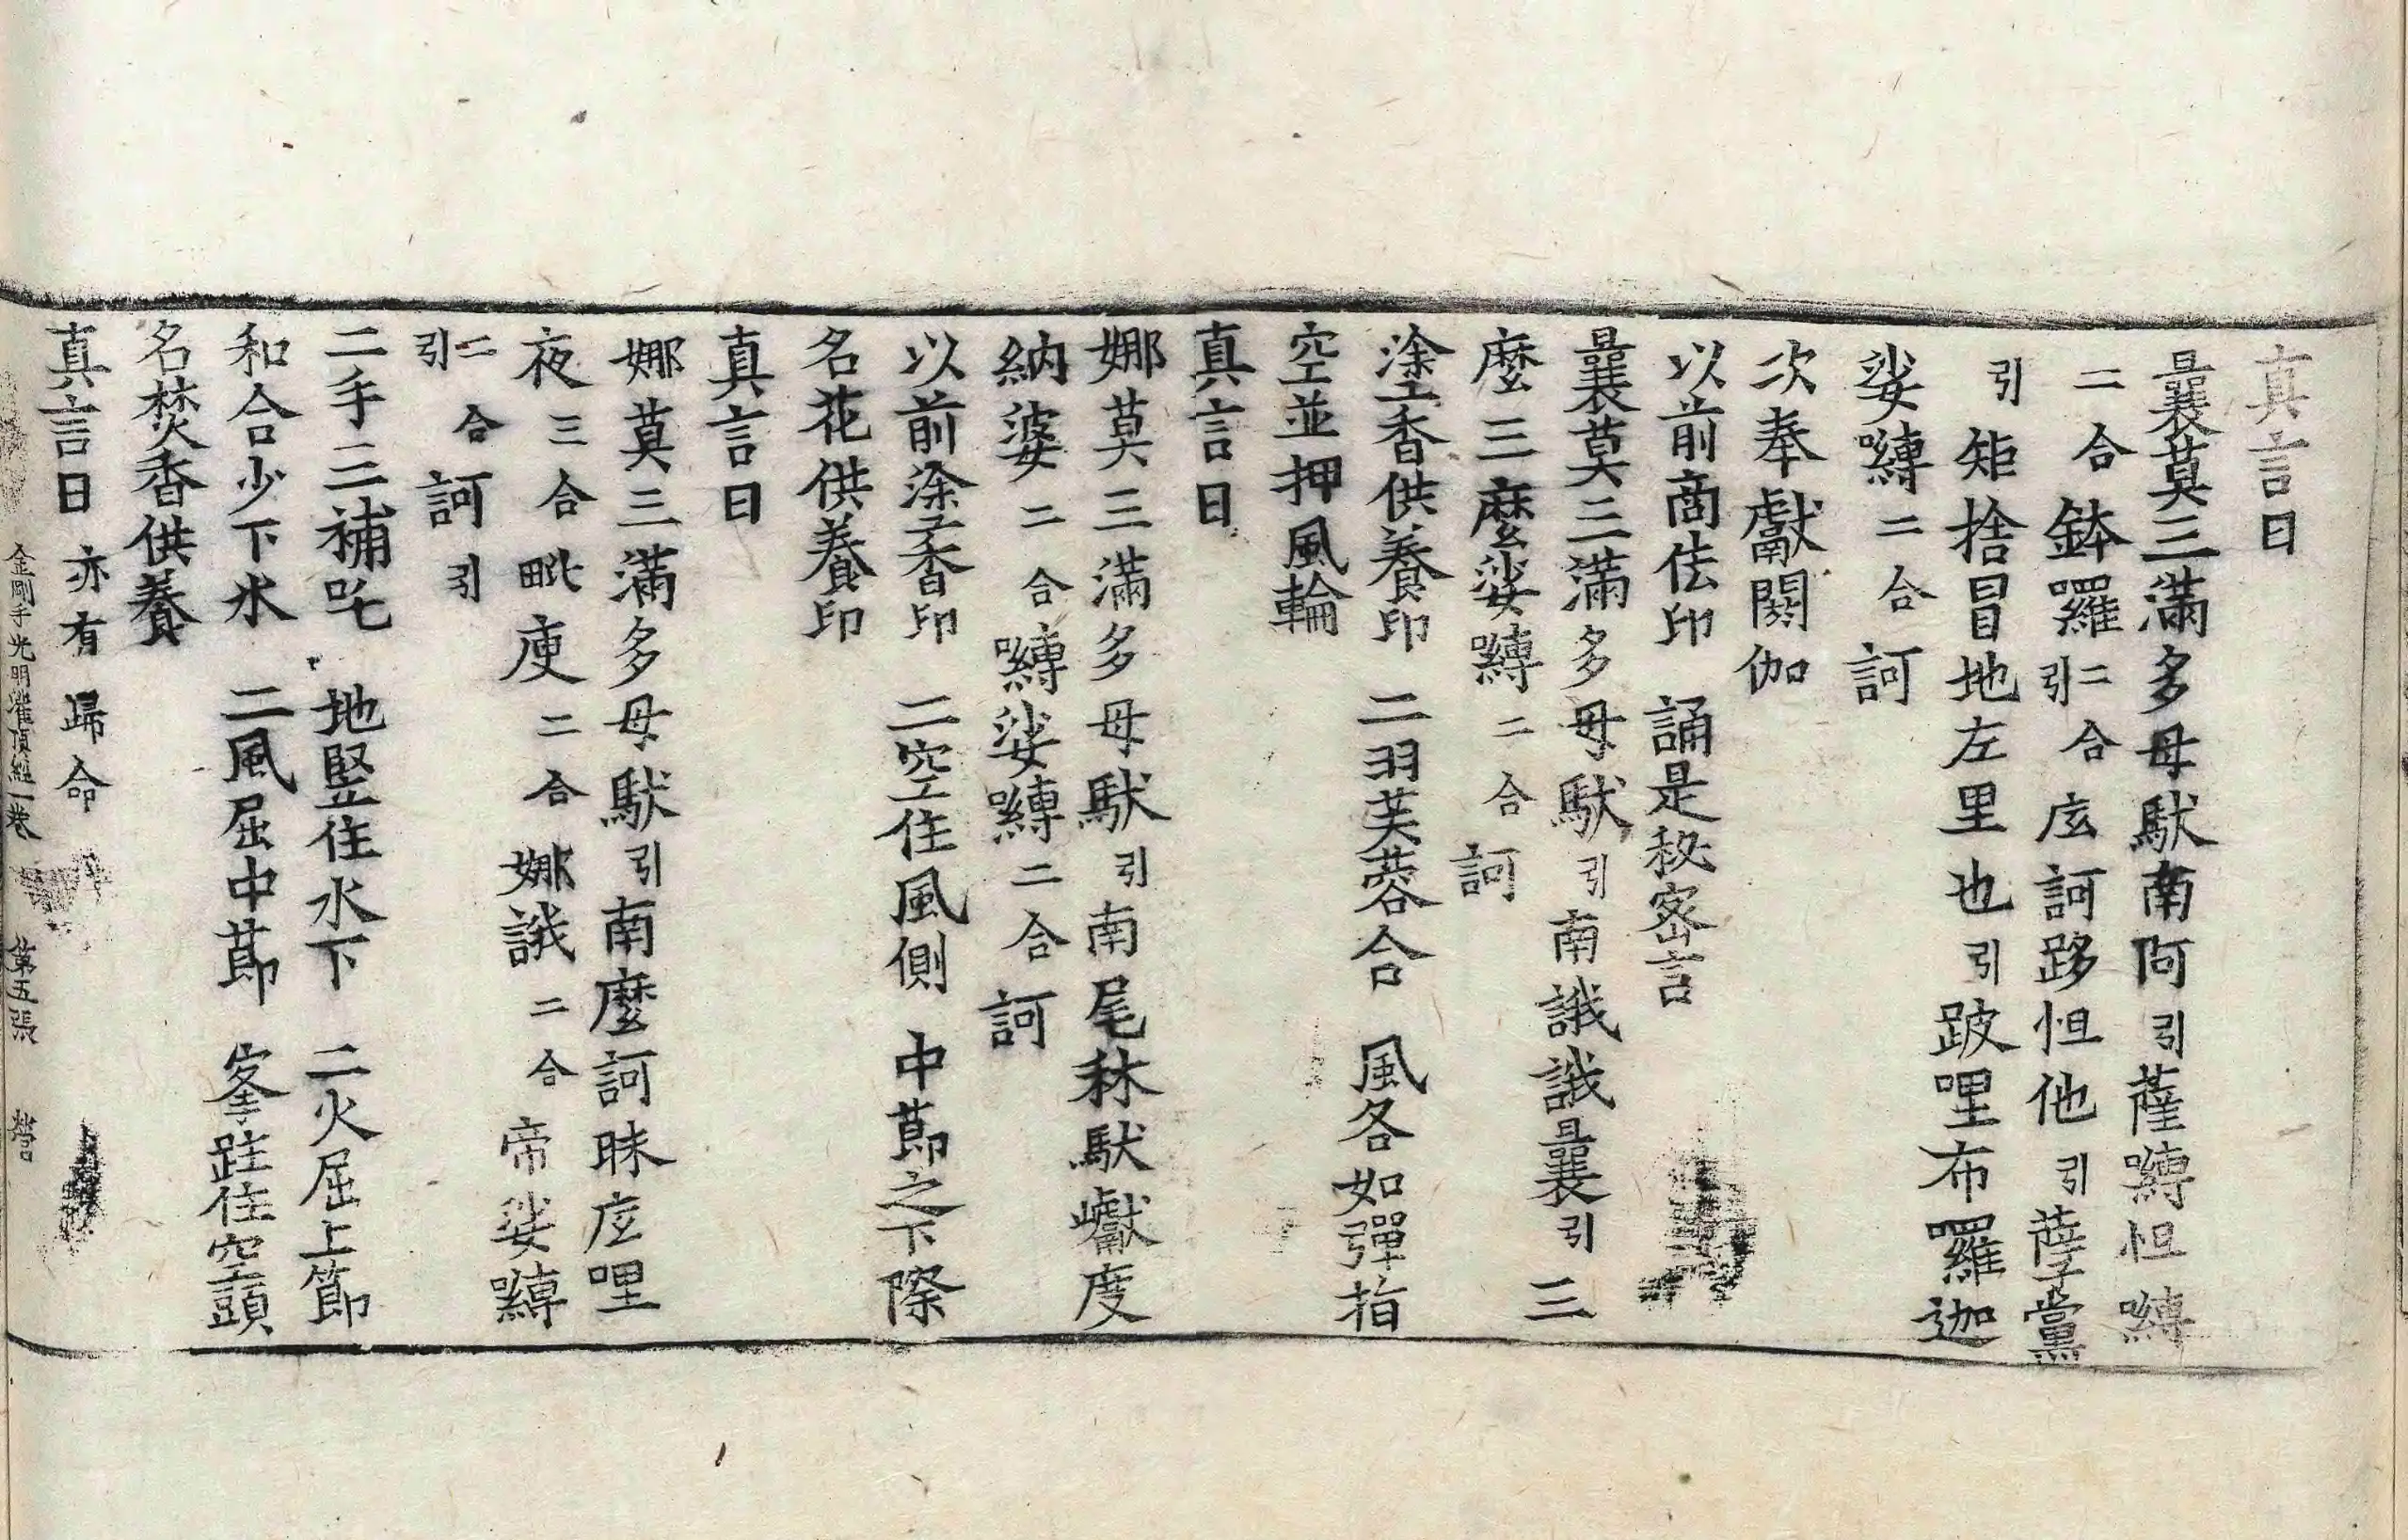 真言曰
曩莫三滿多母馱南阿引薩嚩怛嚩
二合鉢羅二合引庅訶跢怛他引薩黨
引矩捨冒地左里也引跛哩布羅迦
娑嚩二合訶
次奉獻閼伽
以前商佉印　誦是秘密言
曩莫三滿多母馱引南誐誐曩引三
麼三麼娑嚩二合訶
塗香供養印　二羽芙蓉合　風各如彈指
空並押風輪
真言曰
娜莫三滿多母馱引南尾秣馱巘度
納婆二合嚩娑嚩二合訶
以前塗香印　二空住風側　中莭之下際
名花供養印
真言曰
娜莫三滿多母馱引南麼訶昧庅哩
夜三合毗庾二合娜誐二合帝娑嚩
二合引訶引
二手三補吒　地竪住水下　二火屈上節
和合少下水　二風屈中莭　峯跓住空頭
名焚香供養
真言曰亦有歸命
金剛手光明灌頂經一卷　第五張